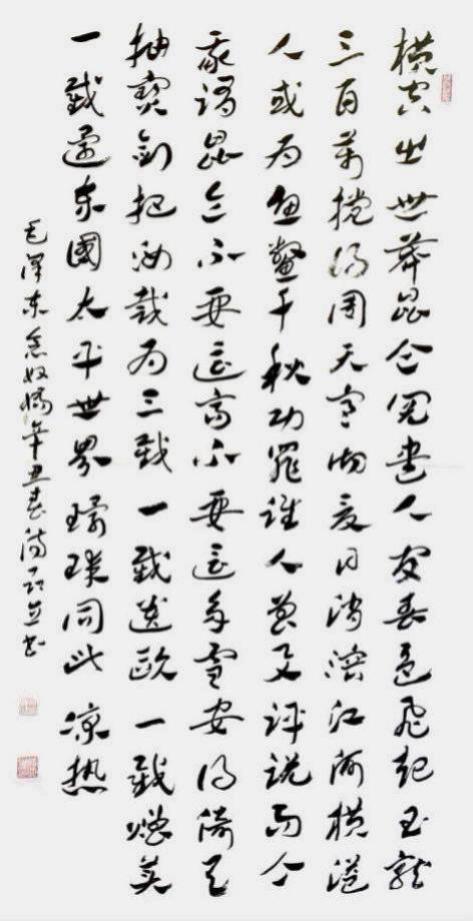 横空出世莽昆仑阅尽人间春色飞起玉龍
三百萬搅得周天寒彻夏日消溶江河横溢
人或为鱼鳖千秋功罪谁人曾与评说而今
我谓昆仑不要这高不要这多雪安得倚天
抽寶剑把汝裁为三截一截遗歐一截赠美
一截還东國太平世界環球同此凉热
毛泽东念奴娇辛丑春